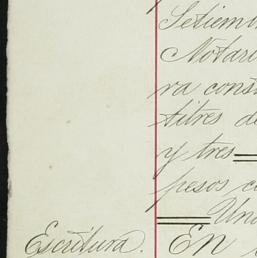 Setiem
Notari
va cons
titres de
y tres
pesos c
Un
Escritura. En